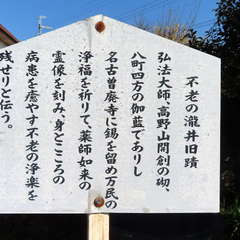 不老の瀧井旧蹟
弘法大師 高野山開創の砌、
八町四方の伽藍でありし
名古曽廃寺に錫を留め万民の
浄福を祈りて、薬師如来の
霊像を刻み、身とこころの
病患を癒す不老の浄楽を
残せりと伝う。